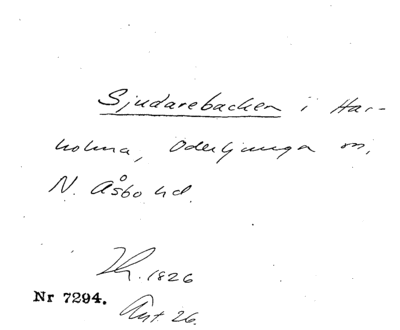 Sjudarebacken i Har-
holma, Oderljunga sn,
N. Åsbo hd.
Th. 1826
Nr 7294.
Ant. 26.